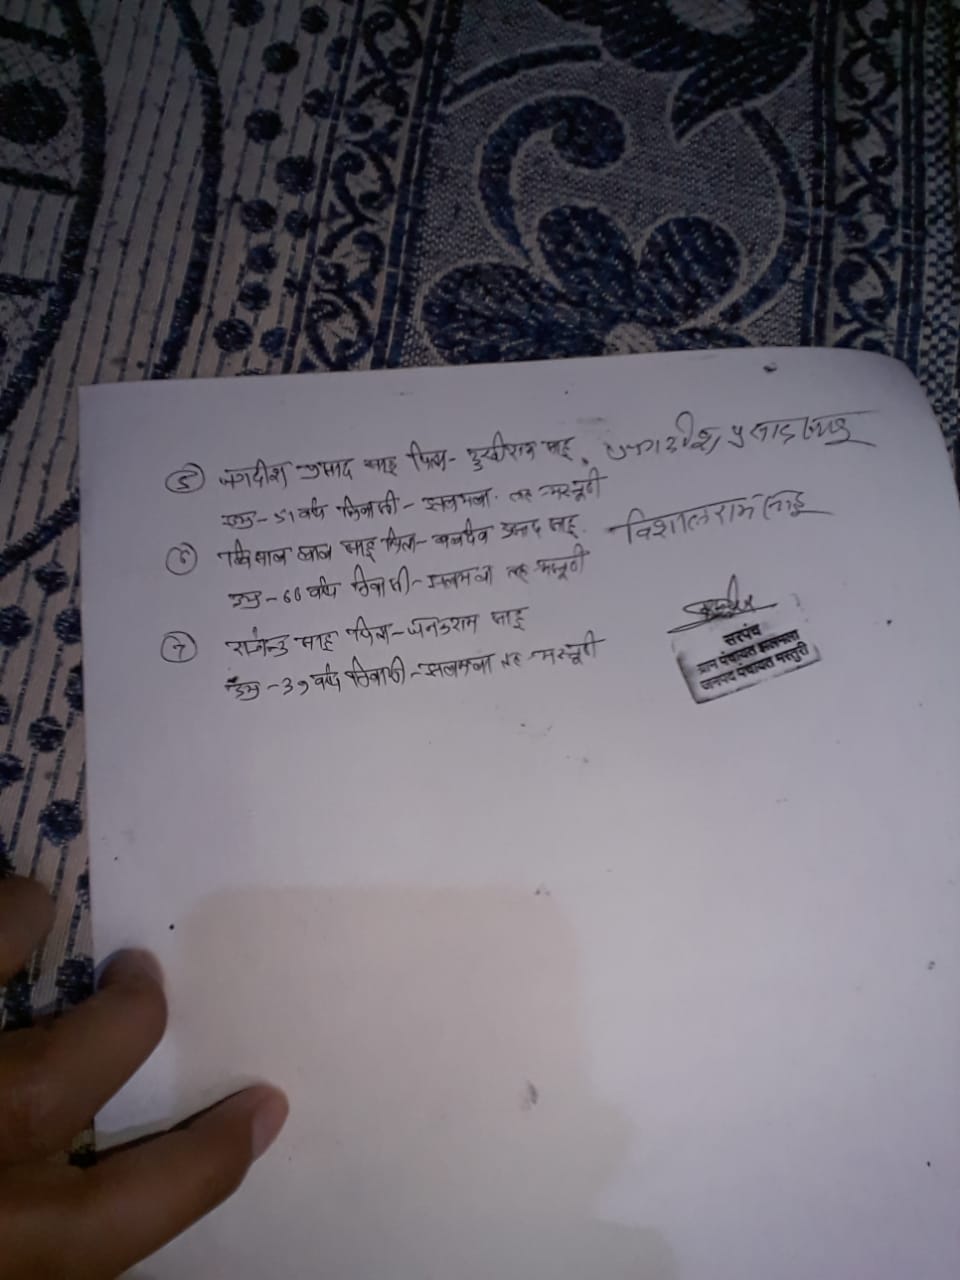 ⑤ जगदीश प्रसाद साहू पिता- दुखीराम साहू, जगदीश प्रसाद साहू
उम्र- 51 वर्ष निवासी- झलमला तह मस्तूरी
⑥ विशाल राम साहू पिता- बलदेव प्रसाद साहू. विशालराम साहू
उम्र- 60 वर्ष निवासी- झलमला तह मस्तूरी
⑦ राजेन्द्र साहू पिता- जनकराम साहू
उम्र- 39 वर्ष निवासी- झलमला तह मस्तूरी
सरपंच
ग्राम पंचायत झलमला
जनपद पंचायत मस्तुरी